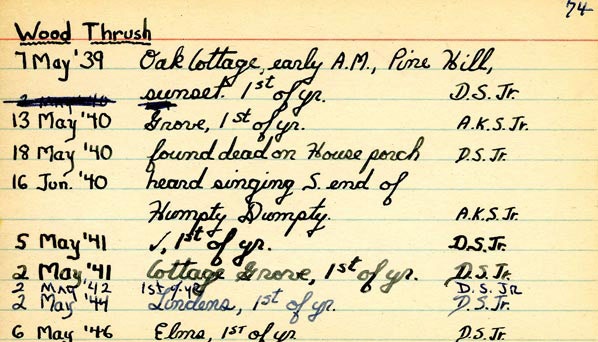 74
Wood Thrush
7 May '39 Oak Cottage, early A.M., Pine Hill,
sunset. 1st of yr. D.S. Jr.
13 May '40 Grove, 1st of yr. A.K.S. Jr.
18 May '40 found dead on House porch D.S. Jr.
16 Jun. '40 heard singing S. end of
Humpty Dumpty. A.K.S. Jr.
5 May '41 ✓, 1st of yr. D.S. Jr.
2 May '41 Cottage Grove, 1st of yr. D.S. Jr.
2 May '42 1st of yr. D.S. Jr
2 May '44 Lindens, 1st of yr. D.S. Jr.
6 May '46 Elms, 1st of yr D.S. Jr.